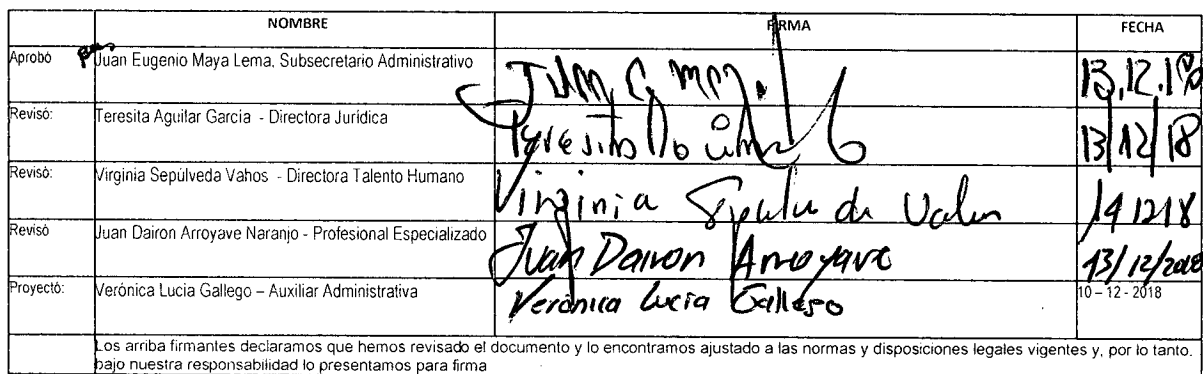 NOMBRE FIRMA FECHA
Aprobó Juan Eugenio Maya Lema. Subsecretario Administrativo 13.12.18
Revisó: Teresita Aguilar Garcia - Directora Jurídica Teresita 13/12/18
Revisó: Virginia Sepúlveda Vahos - Directora Talento Humano Virginia 14 12 18
Revisó Juan Dairon Arroyave Naranjo - Profesional Especializado Juan Dairon Arroyave 13/12/2018
Proyectó: Verónica Lucia Gallego – Auxiliar Administrativa Verónica Lucia Gallego 10 – 12 - 2018
Los arriba firmantes declaramos que hemos revisado el documento y lo encontramos ajustado a las normas y disposiciones legales vigentes y, por lo tanto.
bajo nuestra responsabilidad lo presentamos para firma